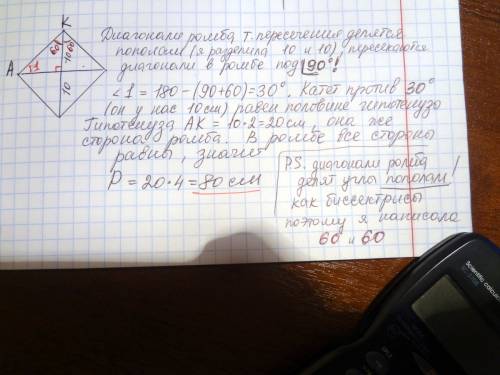 Диагонали ромба т. пересечения делятся
пополам (я разделила 10 и 10), пересекаются
диагонали в ромбе под 90°!
∠1 = 180 - (90+60)=30°. Катет против 30°
(он у нас 10см) равен половине гипотенузо
Гипотенуза АК = 10·2=20см, она же
сторона ромба. В ромбе все стороны
равны, значит
P = 20·4 = 80 см
P.S. диагонали ромба
делят углы пополам!
как биссектрисы
поэтому я написала
60 и 60
К
А
60
60
1
10
10
Scientific calcu